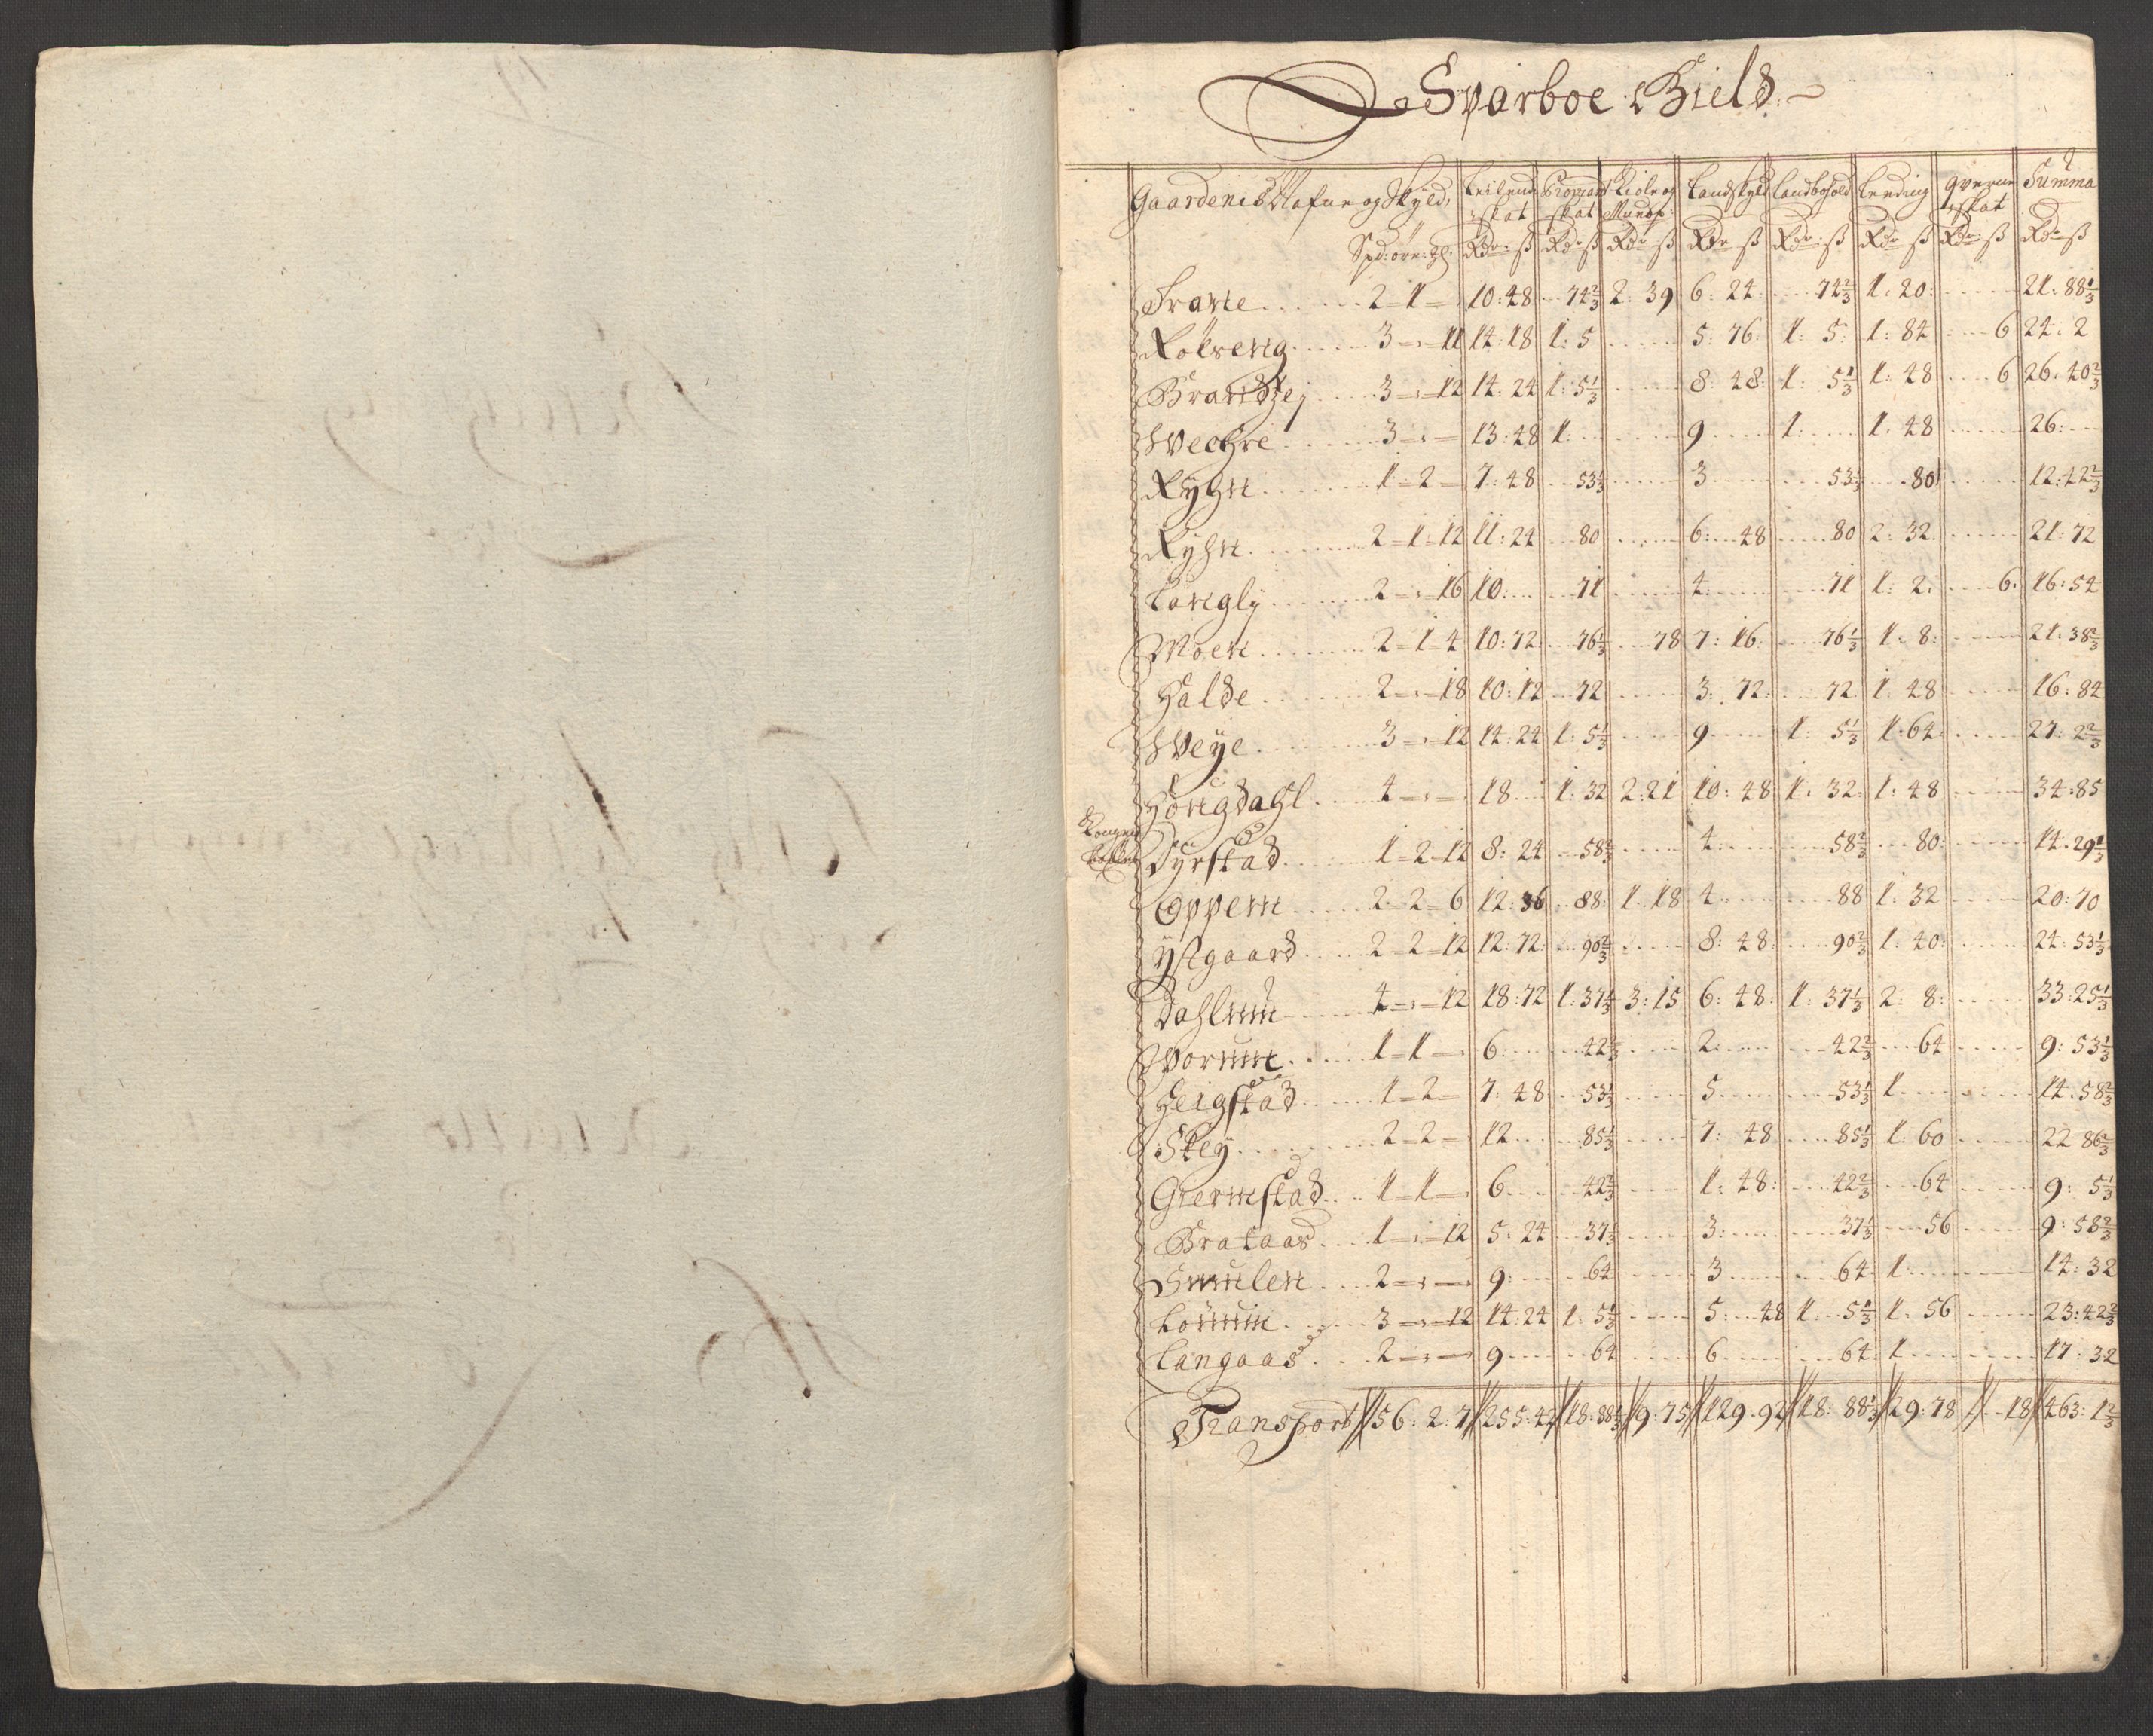 Sparboe Gield
Gaardenis Nafne og Skyld, Leilend: skat Proviant skat Kiole og Mundp: Landskyld Landbohold Leeding qverne skat Summa
Spd: öre: ℔: Rdr ß Rdr ß Rdr ß Rdr ß Rdr ß Rdr ß Rdr ß Rdr ß
Trane 2 - 1 - 10: 48 74 2/3 2: 39 6: 24 74 2/3 1: 20: 21: 88 1/3
Rökeng 3 - : - 11 14: 18 1: 5 5: 76 1: 5: 1: 84 6 24: 2
Brandzej 3 - : - 12 14: 24 1: 5 1/3 8: 48: 1: 5 1/3 1: 48 6 26: 40 2/3
Wechre 3 - : - 13: 48 1: 9 1: 1: 48 26:
Rygn 1 - 2 - 7: 48 53 1/3 3 53 1/3 80 12: 42 2/3
Ryhn 2 - 1 - 12 11: 24 80 6: 48 80 2: 32 21: 72
Langly 2 - : - 16 10: 71 4 71 1: 2: 6: 16: 54
Moen 2 - 1 - 4 10: 72 76 1/3 78 7: 16 76 1/3 1: 8: 21: 38 2/3
Halde 2 - : - 18 10: 12 72 3: 72: 72 1: 48 16: 84
Weye 3 - : - 12 14: 24 1: 5 1/3 9 1: 5 1/3 1: 64 27: 2 2/3
Höngdahl 4 - : - 18 1: 32 2: 21 10: 48 1: 32: 1: 48 34: 85
Dyrstad 1 - 2 - 12 8: 24 58 2/3 4 58 2/3 80: 14: 29 1/3
Oppem 2 - 2 - 6 12: 36 88: 1: 18 4 88 1: 32 20: 70
ystgaard 2 - 2 - 12 12: 72: 90 2/3 8: 48: 90 2/3 1: 40: 24: 53 1/3
Dahlum 4 - : - 12 18: 72 1: 37 1/3 3: 15 6: 48: 1: 37 1/3 2: 8: 33: 25 1/3
Worum 1 - 1 - 6: 42 2/3 2: 42 2/3 64 9: 53 1/3
Heigstad 1 - 2 - 7: 48 53 1/3 5 53 1/3 1 14: 58 2/3
Skey 2 - 2 - 12 85 1/3 7: 48 85 1/3 1: 60 22 86 2/3
Giermstad 1 - 1 - 6 42 2/3 1: 48: 42 2/3 64 9: 5 1/3
Brataas 1 - : - 12 5: 24 37 1/3 3: 37 1/3 56 9: 58 2/3
Smulen 2 - : - 9: 64 3 64 1: 14: 32
Lönum 3 - : - 12 14: 24 1: 5 1/3 5: 48 1: 5 1/3 1: 56 23: 42 2/3
Langaas 2 - : - 9 64 6 64: 1 17: 32
Transport 56: 2: 7 255: 42 18: 88 1/3 9: 75 129: 92 18: 88 1/3 29: 78 18 463: 1 2/3